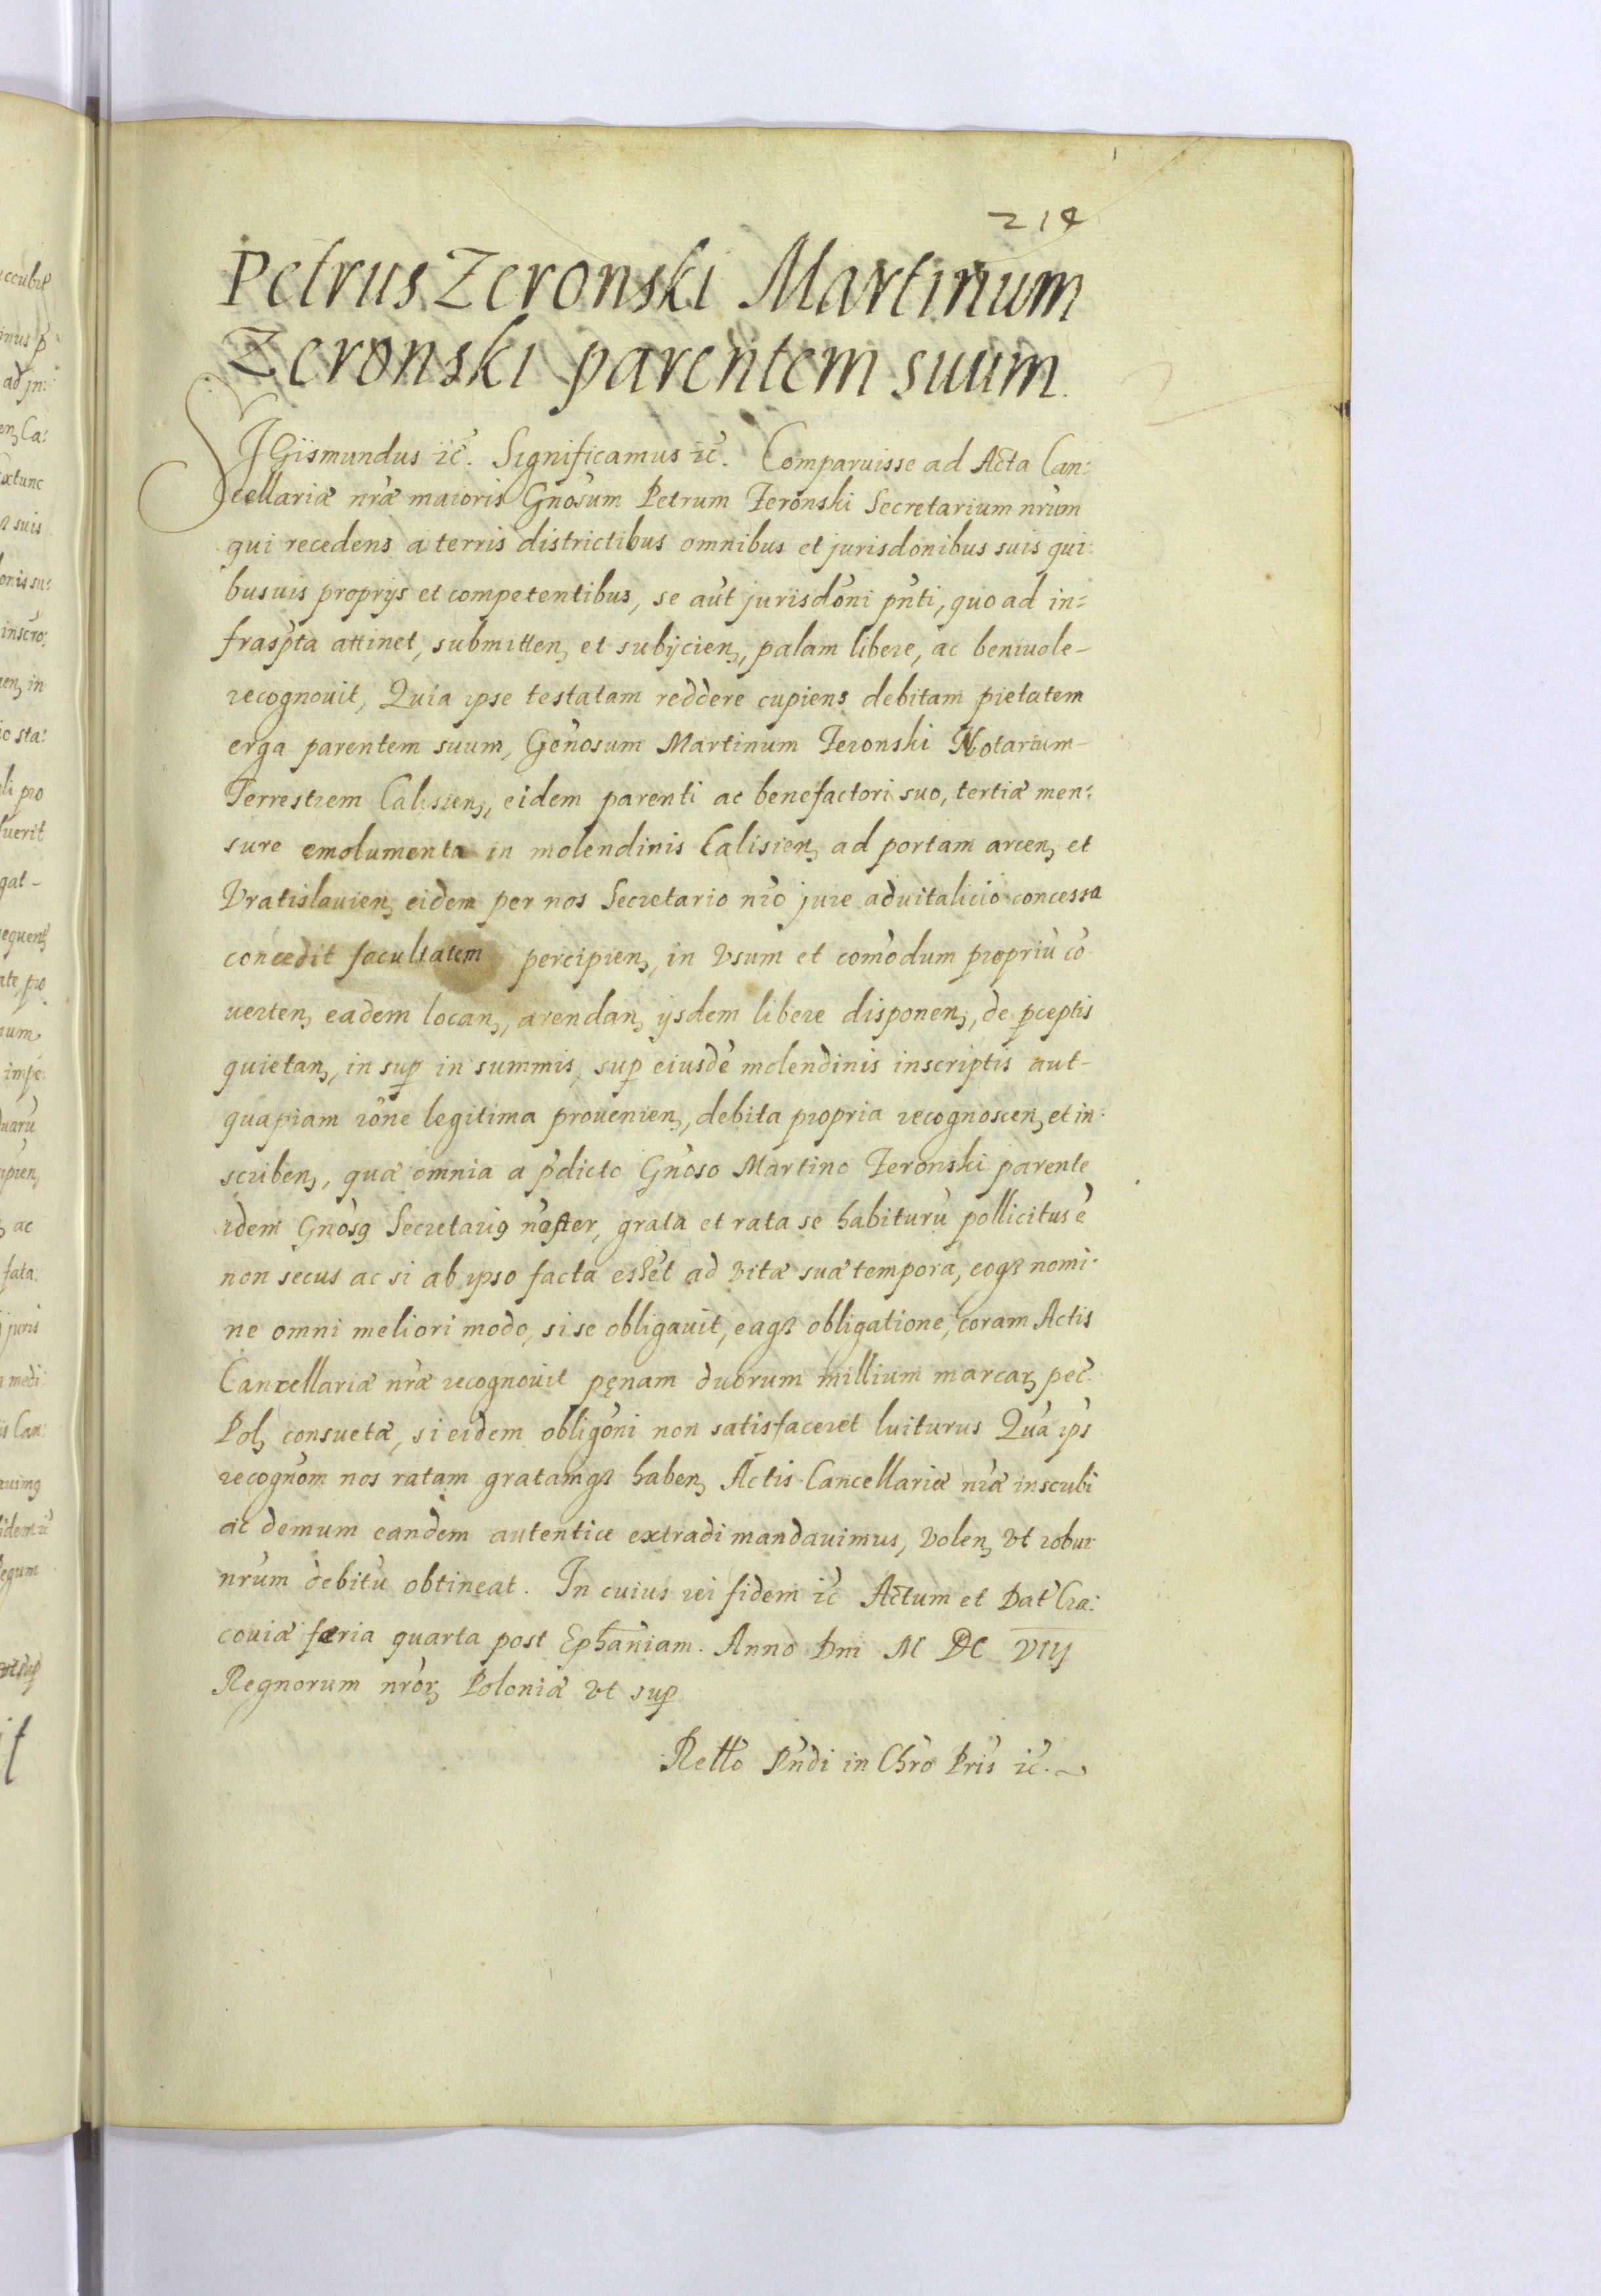 214
Petrus Zeronski Martinum
Zeronski parentem suum.
SIGismundus ić. Significamus ić. Comparuisse ad Acta Can:
cellariæ nr̃æ maioris Gnõsum Petrum Zeronski Secretarium nr̃um
qui recedens a terris districtibus omnibus et jurisdõnibus suis qui:
busuis proprijs et competentibus, se aũt jurisdõni pñti, quo ad in=
frasp̃ta attinet, submitten, et subijcien, palam libere, ac beniuole-
recognouit, Quia ipse testatam reddere cupiens debitam pietatem
erga parentem suum, Geñosum Martinum Zeronski Notarium-
Terrestrem Calisien, eidem parenti ac benefactori suo, tertiæ men:
sure emolumenta in molendinis Calisien, ad portam arcen, et
Vratislauien, eidem per nos Secretario nr̃o jure aduitalicio concessa
concedit facultatem percipien, in Vsum et com̃odum propriũ cõ
uerten, eadem locan, arendan, ijsdem libere disponen, de p̱ceptis
quietan, in sup̱ in summis, sup̱ eiusdẽ molendinis inscriptis aut-
quapiam rõne legitima prouenien, debita propria recognoscen, et in
scriben, quæ omnia a p̃dicto Gñoso Martino Zeronski parente
idem Gnõsꝰ Secretariꝰ noster, grata et rata se habiturũ pollicitus ẽ
non secus ac si ab ipso facta essẽt ad vitæ suæ tempora, eoqꝫ nomi:
ne omni meliori modo, si se obligauit, eaqꝫ obligatione, coram Actis
Cancellariæ nr̃æ recognouit pęnam duorum millium marcaꝝ pec̃.
Pol, consuetæ, si eidem obligõni non satisfaceret luiturus Quã ips̃
recognõm nos ratam gratamqꝫ haben, Actis Cancellariæ nr̃æ inscribi
ac demum eandem autentice extradi mandauimus, volen, vt robur
nr̃um debitũ obtineat. In cuius rei fidem ić Actum et Dat̃ Cra:
couiæ færia quarta post Ephaniam. Anno Dni M DC VIIJ
Regnorum nrõꝝ Poloniæ vt sup̱
Rettõ Pñdi in Chrõ Pris̃ ić.